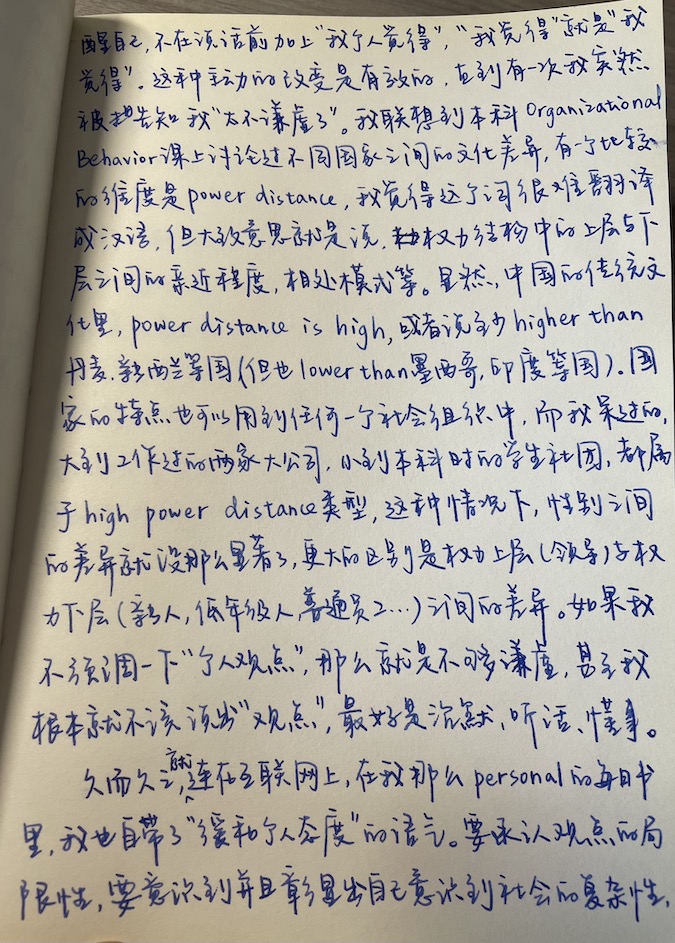 醒自己，不在说话前加上“我个人觉得”，“我觉得”就是“我
觉得”。这种主动的改变是有效的，直到有一次我突然
被告知我“太不谦虚了”。我联想到本科 Organizational
Behavior课上讨论过不同国家之间的文化差异，有一个比较
的维度是power distance，我觉得这个词很难翻译
成汉语，但大致意思就是说，权力结构中的上层与下
层之间的亲近程度，相处模式等。显然，中国的传统文
化里，power distance is high，或者说至少 higher than
丹麦、新西兰等国（但也 lower than墨西哥，印度等国）。国
家的特点也可以用到任何一个社会组织中，而我呆过的，
大到工作过的两家大公司，小到本科时的学生社团，都属
于 high power distance类型，这种情况下，性别之间
的差异就没那么显著了，更大的区别是权力上层（领导）与权
力下层（新人，低年级人，普通员工…）之间的差异。如果我
不强调一下“个人观点”，那么就是不够谦虚，甚至我
根本就不该说出“观点”，最好是沉默、听话、懂事。
久而久之，就连在互联网上，在我那么 personal 的每日书
里，我也自带了“缓和个人态度”的语气。要承认观点的局
限性，要意识到并且彰显出自己意识到社会的复杂性，